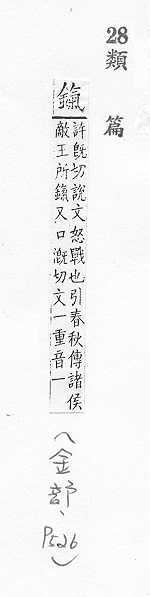 28類篇
鎎
許旣切說文怒戰也引春秋傳諸侯
敵王所鎎又口漑切文一重音一
(金部、P526)